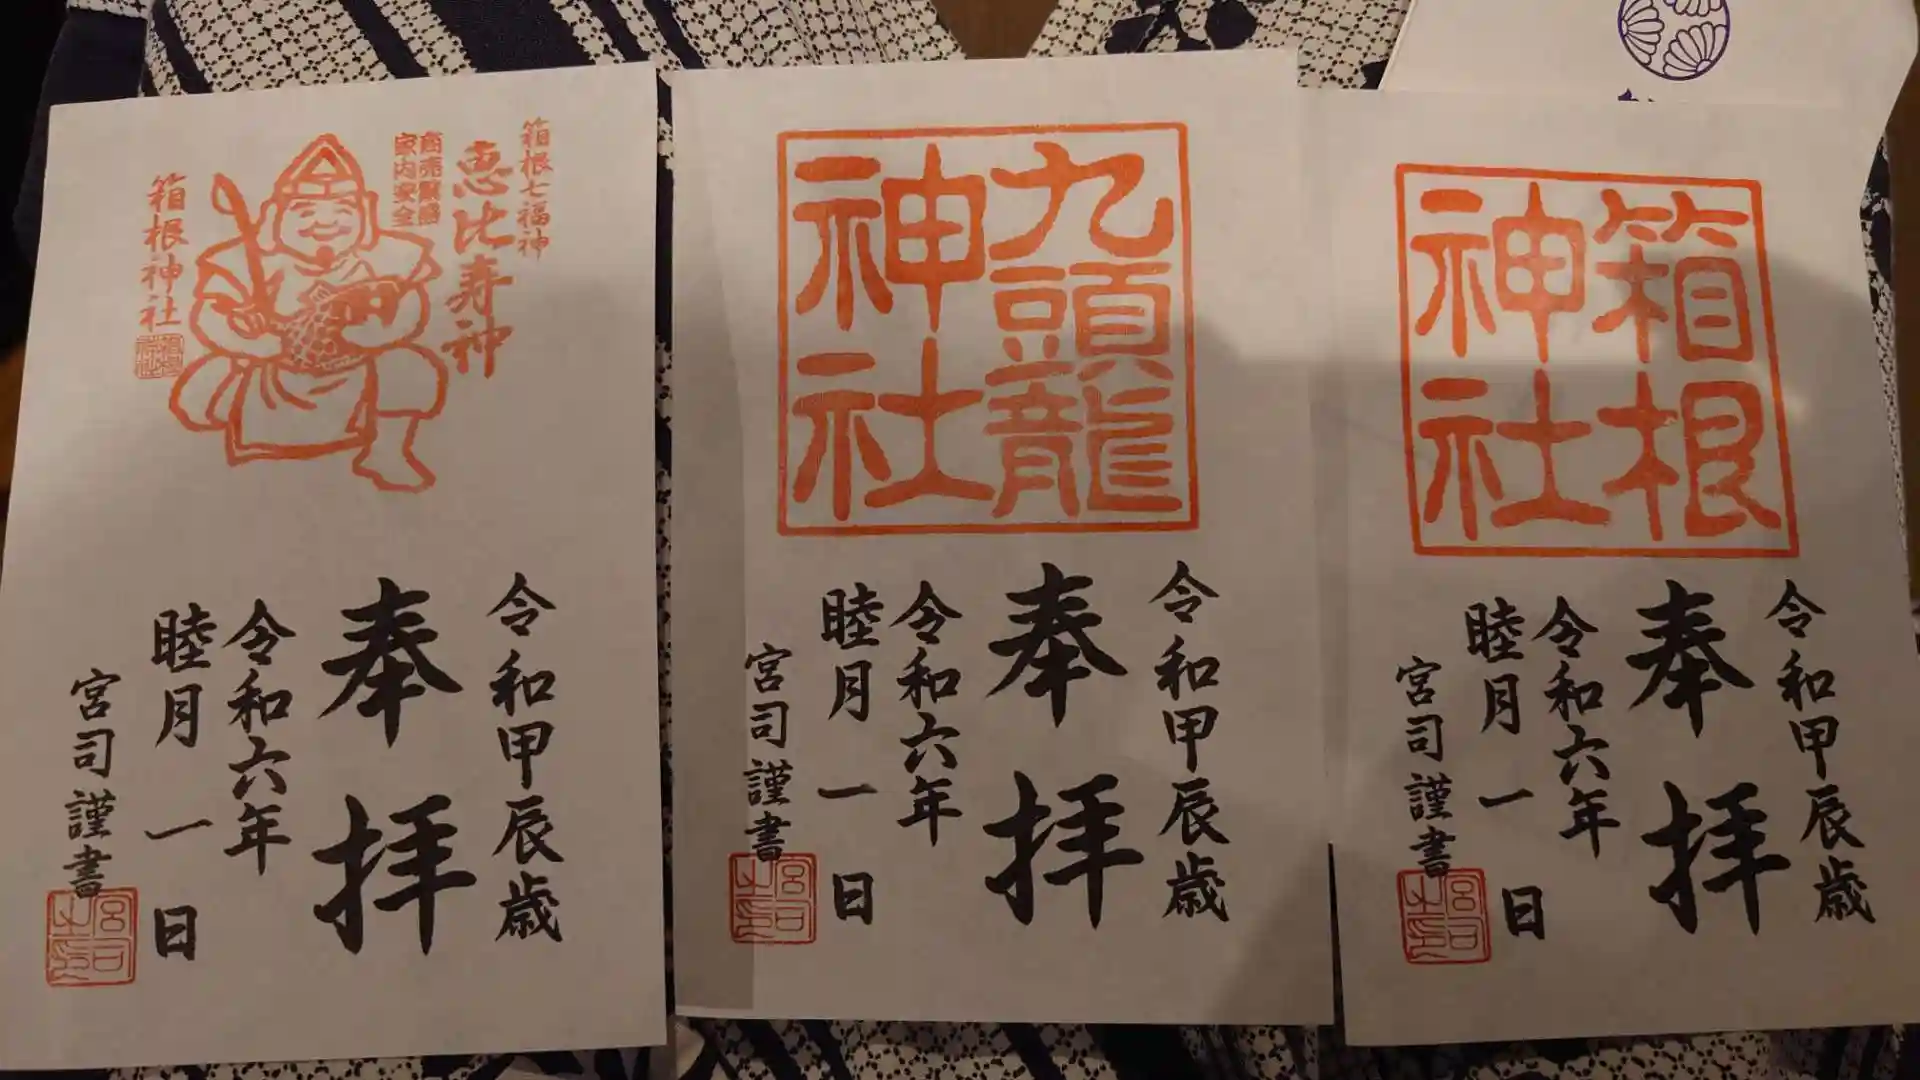 箱根七福神
恵比寿神
商売繁盛
家内安全
箱根神社
令和甲辰歳
奉拝
令和六年
睦月一日
宮司謹書
九頭龍
神社
令和甲辰歳
奉拝
令和六年
睦月一日
宮司謹書
箱根
神社
令和甲辰歳
奉拝
令和六年
睦月一日
宮司謹書